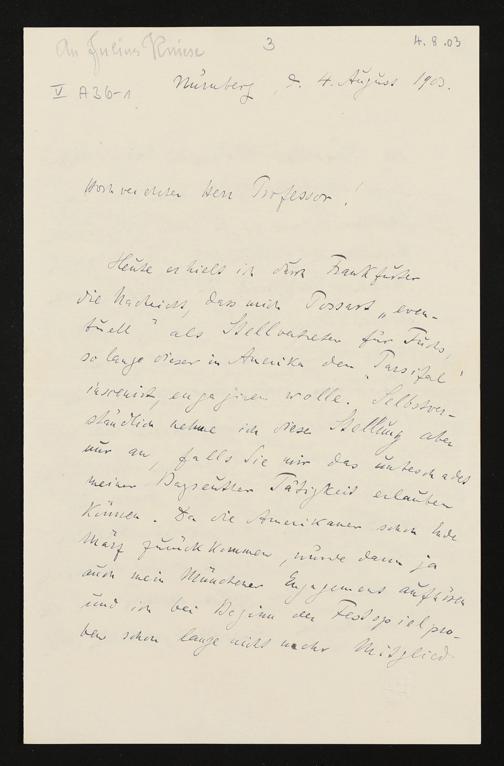 An Julius Kniese
3
4.8.03
V A 36-1
Nürnberg, d. 4. August 1903.
Hochverehrter Herr Professor!
Heute erhielt ich durch Frankfurter
die Nachricht, dass mich Possart „even-
tuell" als Stellvertreter für Fuchs,
so lange dieser in Amerika den „Parsifal"
inscenirt, engagiren wolle. Selbstver-
ständlich nehme ich diese Stellung aber
nur an, falls Sie mir das unbeschadet
meiner Bayreuther Tätigkeit erlauben
können. Da die Amerikaner schon Ende
März zurückkommen, würde dann ja
auch mein Münchener Engagement aufhören
und ich bei Beginn der Festspielpro-
ben schon lange nicht mehr Mitglied